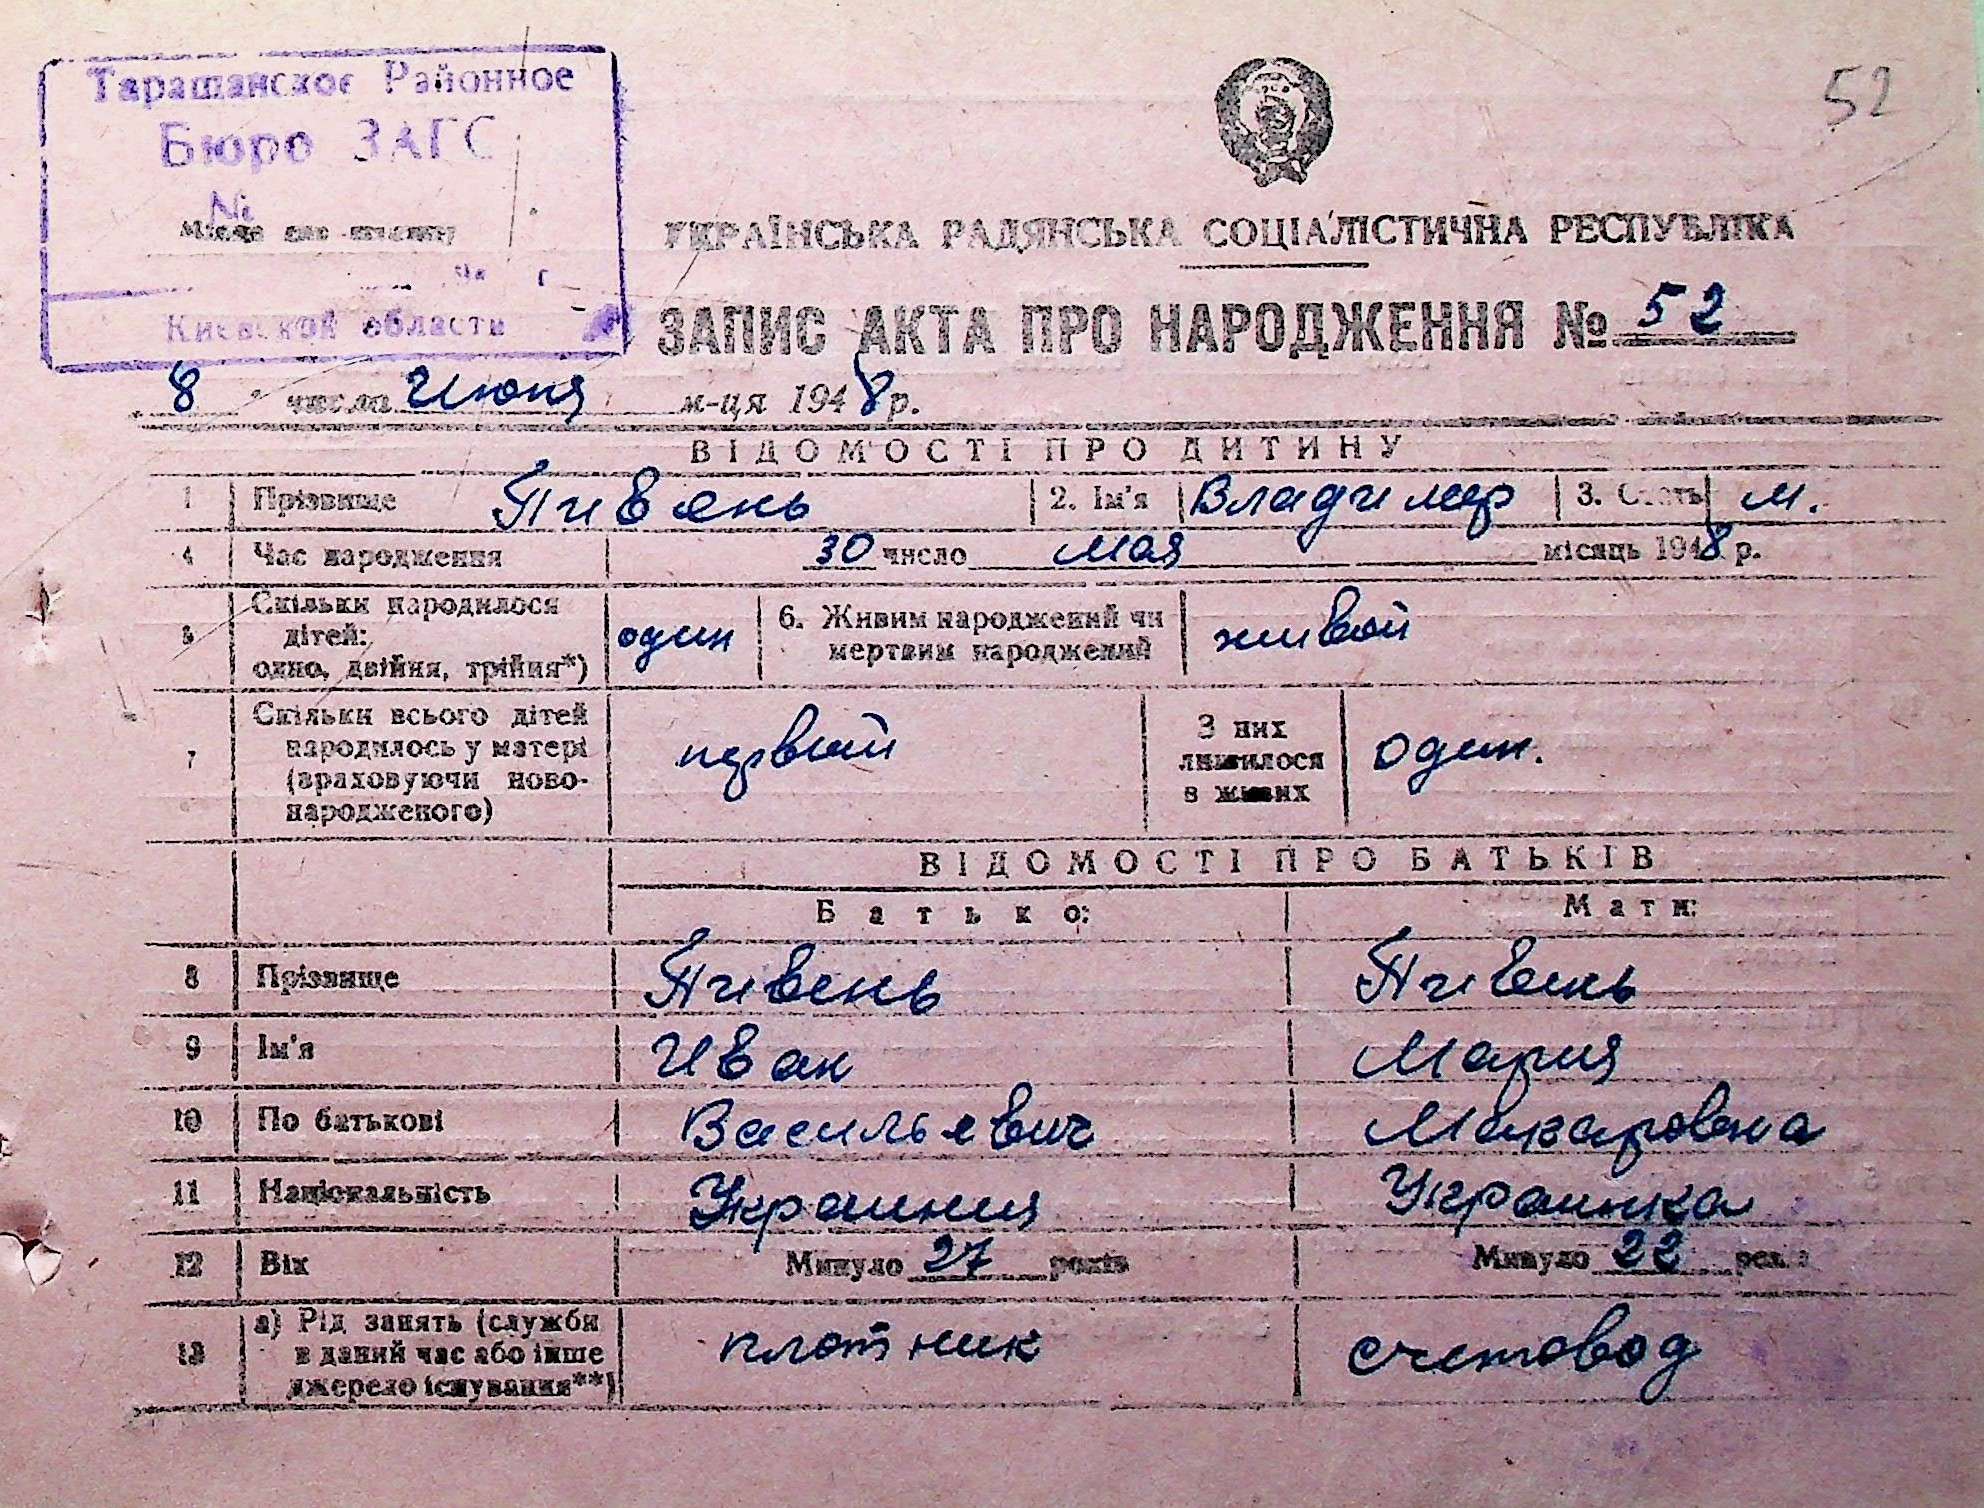 52
Таращанское Районное
Бюро ЗАГС
№
Киевской области
УКРАЇНСЬКА РАДЯНСЬКА СОЦІАЛІСТИЧНА РЕСПУБЛІКА
ЗАПИС АКТА ПРО НАРОДЖЕННЯ № 52
8 числа Июня м-ця 1948 р.
ВІДОМОСТІ ПРО ДИТИНУ
1 Прізвище Пивень 2. Ім'я Владимир 3. Стать м.
4 Час народження 30 число мая місяць 1948 р.
5 Скільки народилося дітей: одно, двійня, трійня*) один 6. Живим народжений чи мертвим народжений живой
7 Скільки всього дітей народилось у матері (враховуючи ново-народженого) первый З них лишилося в живих один.
ВІДОМОСТІ ПРО БАТЬКІВ
Батько: Мати:
8 Прізвище Пивень Пивень
9 Ім'я Иван Мария
10 По батькові Васильевич Макаровна
11 Національність Украинец Украинка
12 Вік Минуло 27 років Минуло 22 рок
13 а) Рід занять (служби в даний час або інше джерело існування**) плотник счетовод